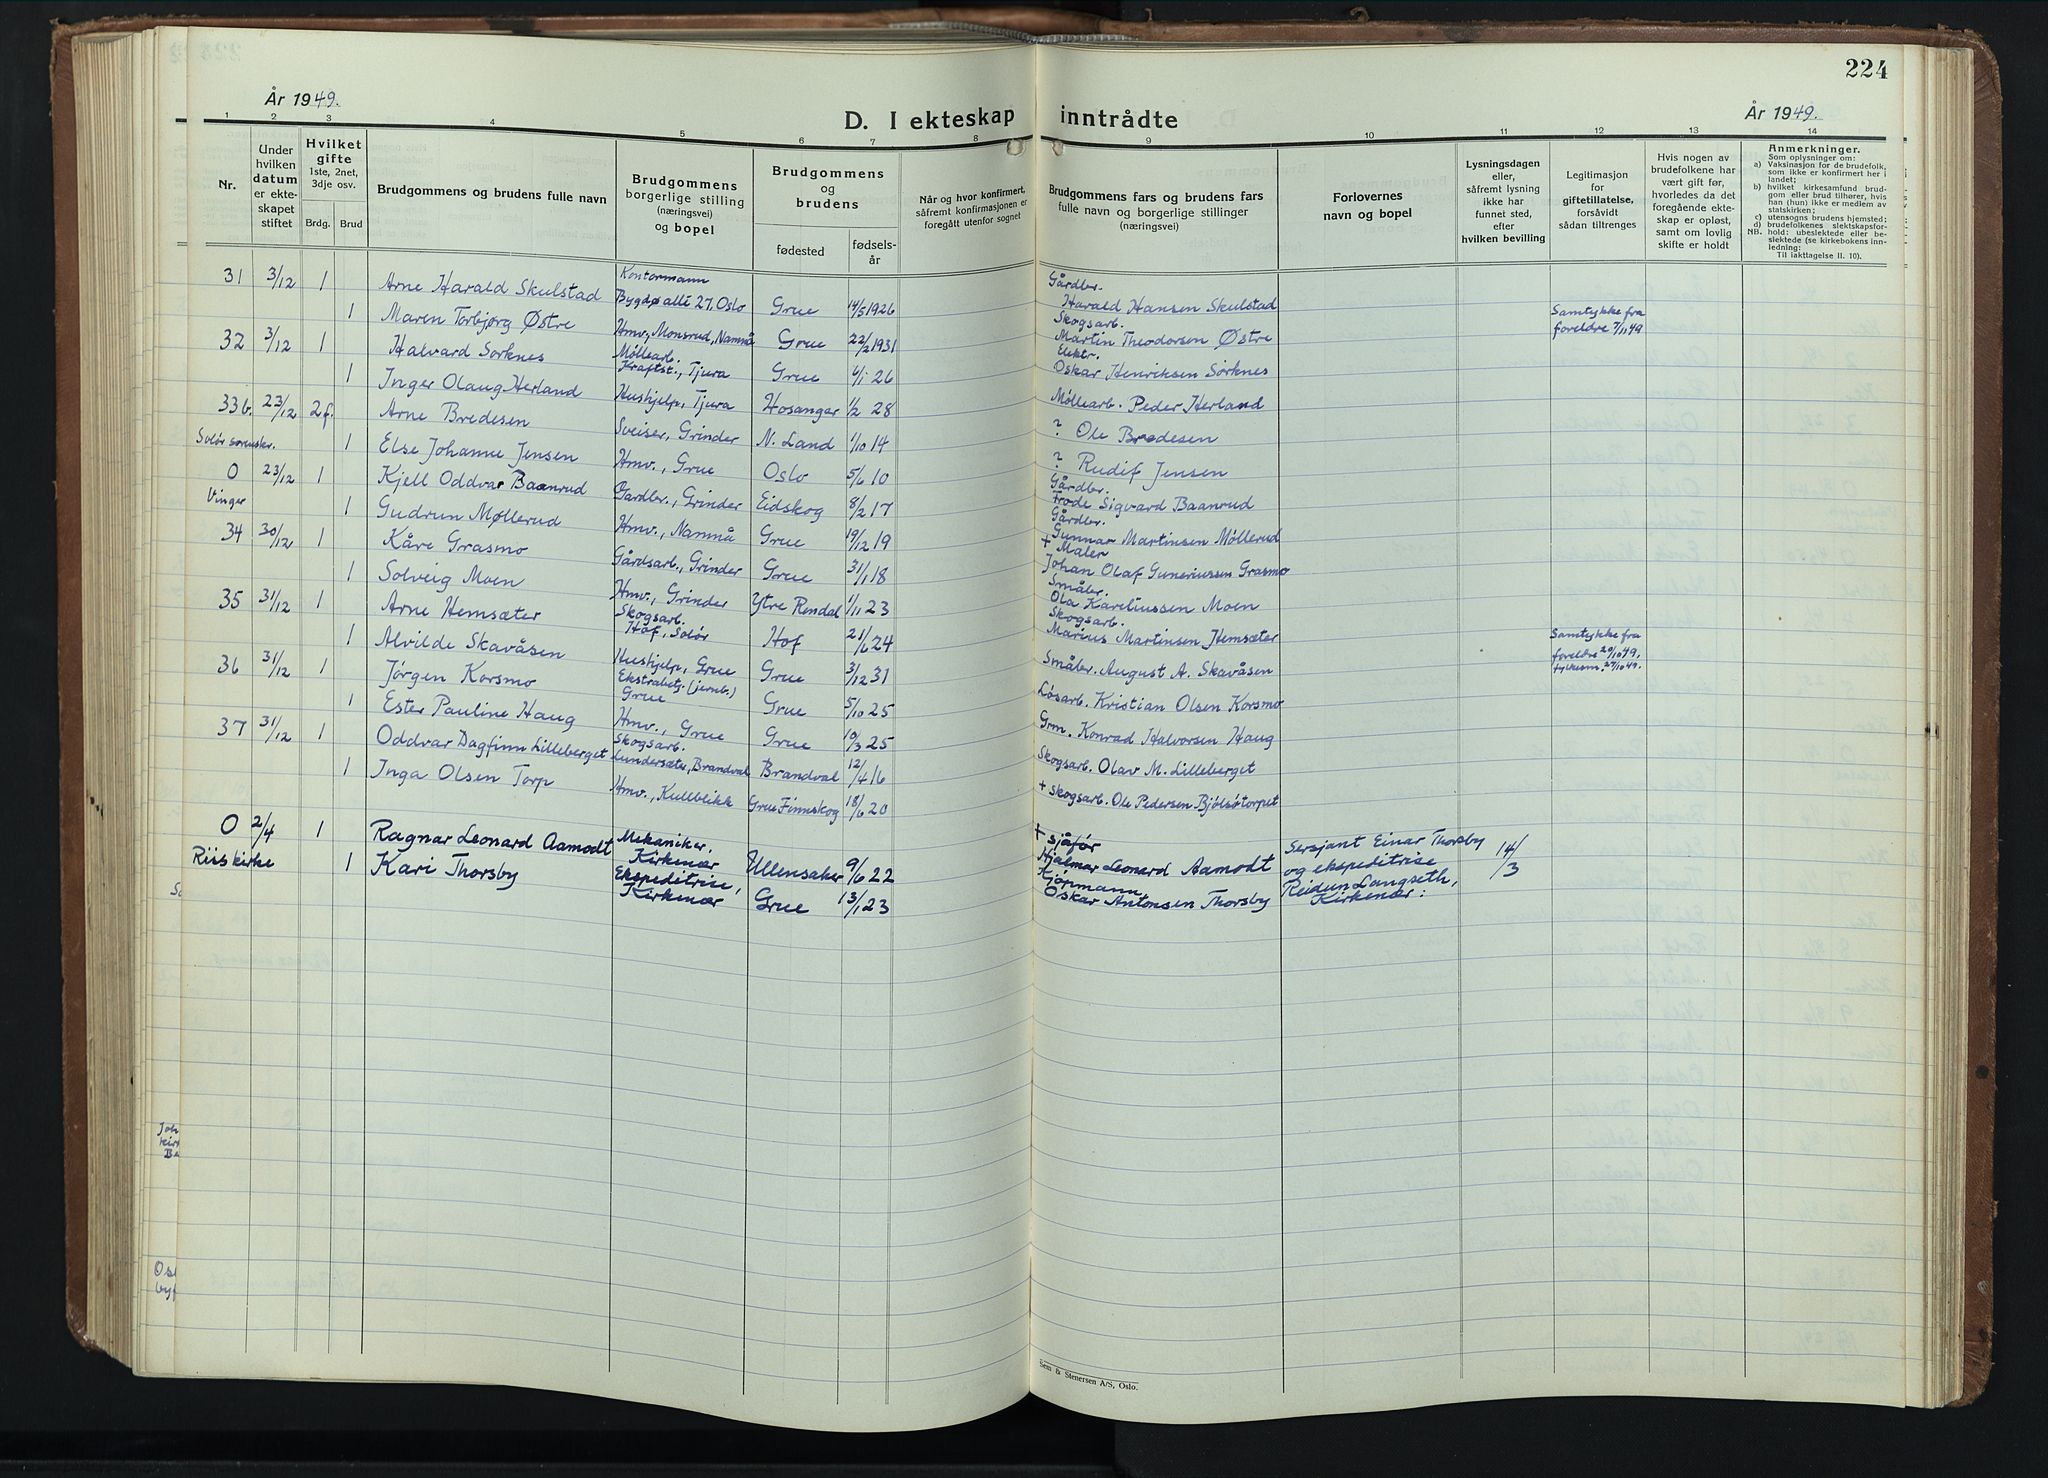 224
År 1949.
D. I ekteskap inntrådte
År 1949.
1 2 3 4 5 6 7 8 9 10 11 12 13 14
Nr.
Under hvilken datum er ekteskapet stiftet
Hvilket gifte 1ste, 2net, 3dje osv.
Brdg. Brud
Brudgommens og brudens fulle navn
Brudgommens borgerlige stilling (næringsvei) og bopel
Brudgommens og brudens
fødested
fødselsår
Når og hvor konfirmert, såfremt konfirmasjonen er foregått utenfor sognet
Brudgommens fars og brudens fars fulle navn og borgerlige stillinger (næringsvei)
Forlovernes navn og bopel
Lysningsdagen eller, såfremt lysning ikke har funnet sted, efter hvilken bevilling
Legitimasjon for giftetillatelse, forsåvidt sådan tiltrenges
Hvis nogen av brudefolkene har vært gift før, hvorledes da det foregående ekteskap er opløst, samt om lovlig skifte er holdt
Anmerkninger.
Som oplysninger om:
a) Vaksinasjon for de brudefolk, som ikke er konfirmert her i landet;
b) hvilket kirkesamfund brudgom eller brud tilhører, hvis han (hun) ikke er medlem av statskirken;
c) utensogns brudens hjemsted;
d) brudefolkenes slektskapsforhold: ubeslektede eller beslektede (se kirkebokens innledning:
NB.
Til iakttagelse II. 10).
31 3/12 1 Arne Harald Skulstad Kontormann Bygdø allé 27, Oslo Grue 14/5 1926 Gårdbr. Harald Hansen Skulstad
1 Maren Torbjørg Østre Hmv., Monsrud, Namnå Grue 22/2 1931 Skogsarb. Martin Theodorsen Østre Samtykke fra foreldre 7/11 49
32 3/12 1 Halvard Sørknes Møllearb. Kraftst., Tjura Grue 6/1 26 Elektr. Oskar Henriksen Sørknes
1 Inger Olaug Herland Hushjelp, Tjura Hosanger 1/2 28 Møllearb. Peder Herland
33b. 23/12 2f. Arne Bredesen Sveiser, Grinder N. Land 1/10 14 ? Ole Bredesen
Solør sorenskr. 1 Else Johanne Jensen Hmv., Grue Oslo 5/6 10 ? Rudif Jensen
0 23/12 1 Kjell Oddvar Baanrud Gardbr., Grinder Eidskog 8/2 17 Gårdbr. Frode Sigvard Baanrud
Vinger 1 Gudrun Møllerud Hmv., Namnå Grue 19/12 19 Gårdbr. Gunnar Martinsen Møllerud
34 30/12 1 Kåre Grasmo Gårdsarb., Grinder Grue 31/1 18 + Maler Johan Olaf Guneriussen Grasmo
1 Solveig Moen Hmv., Grinder Ytre Rendal 1/11 23 Småbr. Ola Kareliussen Moen
35 31/12 1 Arne Hemsæter Skogsarb. Hof, Solør Hof 21/6 24 Skogsarb. Marius Martinsen Hemsæter
1 Alvilde Skavåsen Hushjelp, Grue Grue 3/12 31 Småbr. August A. Skavåsen Samtykke fra foreldre 20/10 49, fylkesm. 27/10 49.
36 31/12 1 Jørgen Korsmo Ekstrabetj. (jernb.) Grue Grue 5/10 25 Løsarb. Kristian Olsen Korsmo
1 Ester Pauline Haug Hmv., Grue Grue 10/3 25 Grm. Konrad Halvorsen Haug
37 31/12 1 Oddvar Dagfinn Lilleberget Skogsarb. Lundersæter, Brandval Brandval 12/4 16 Skogsarb. Olav M. Lilleberget
1 Inga Olsen Torp Hmv., Kulblikk Grue Finnskog 18/6 20 + Skogsarb. Ole Pedersen Bjølsøtorpet
0 2/4 1 Ragnar Leonard Aamodt Mekaniker, Kirkenær Ullensaker 9/6 22 + sjåfør Hjalmar Leonard Aamodt Sersjant Einar Thorsby og ekspeditrise Reidun Langseth, Kirkenær: 14/3
Riis kirke 1 Kari Thorsby Ekspeditrise, Kirkenær Grue 13/1 23 Kjørmann, Oskar Antonsen Thorsby
Sem & Stenersen A/S, Oslo.